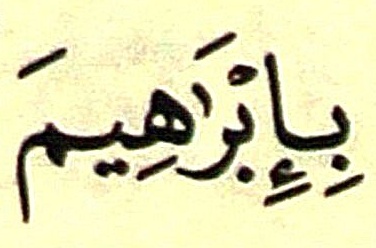 بِإِبْرَٰهِيمَ